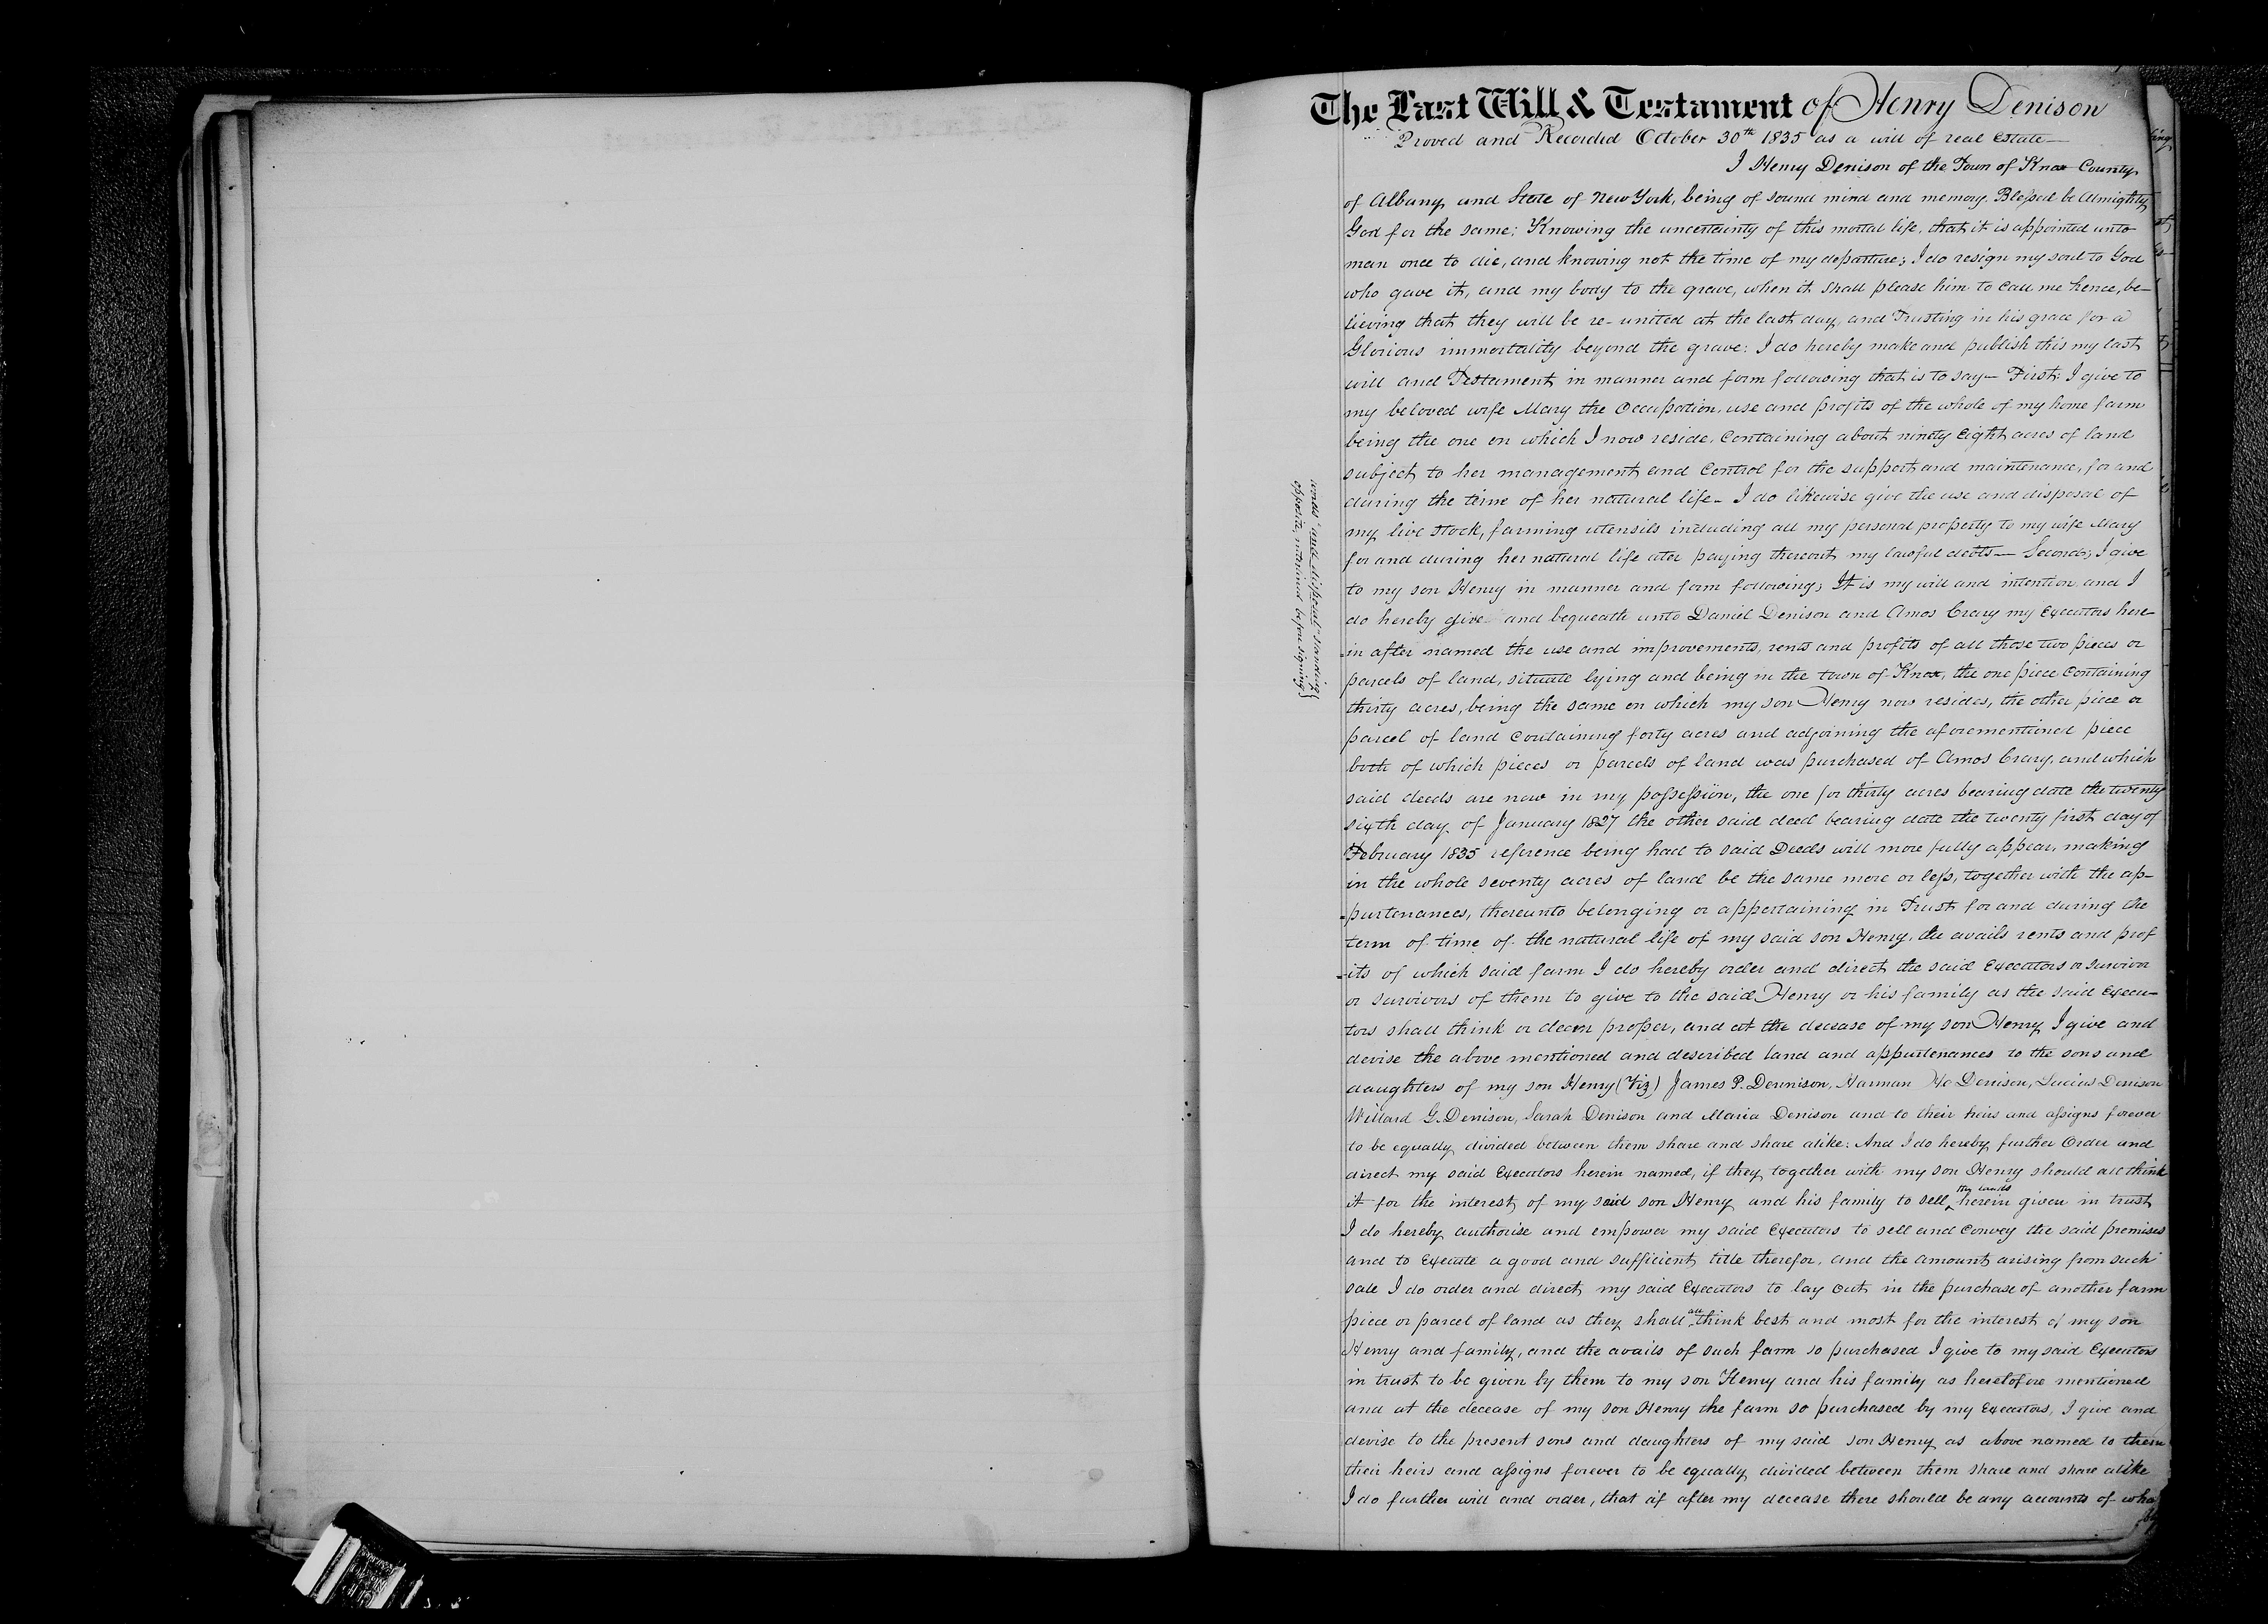 The Last Will & Testament of Henry Denison
Proved and Recorded October 30th 1835 as a will of real Estate—
I Henry Denison of the Town of Knox County
of Albany and State of New York, being of sound mind and memory. Blessed be Almighty
God for the same: Knowing the uncertainty of this mortal life, that it is appointed unto
man once to die, and knowing not the time of my departure; I do resign my soul to God
who gave it, and my body to the grave, when it shall please him to call me hence, be-
lieving that they will be re-united at the last day, and Trusting in his grace for a
Glorious immortality beyond the grave: I do hereby make and publish this my last
will and Testament in manner and form following that is to say— First: I give to
my beloved wife Mary the Occupation, use and profits of the whole of my home farm
being the one on which I now reside, Containing about ninety Eight acres of land
subject to her management and Control for the support and maintenance, for and
during the time of her natural life— I do likewise give the use and disposal of
my live stock, farming utensils including all my personal property to my wife Mary
for and during her natural life ater paying thereout my lawful debts— Second; I give
to my son Henry in manner and form following; It is my will and intention, and I
do hereby give and bequeath unto Daniel Denison and Amos Crary my Executors here-
=in after named the use and improvements, rents and profits of all those two pieces or
parcels of land, situate lying and being in the town of Knox, the one piece Containing
thirty acres, being the same on which my son Henry now resides, the other piece or
parcel of land Containing forty acres and adjoining the aforementioned piece
both of which pieces or parcels of land was purchased of Amos Crary, and which
said deeds are now in my possession, the one for thirty acres bearing date the twenty
sixth day of January 1827 the other said deed bearing date the twenty first day of
February 1835 reference being had to said Deeds will more fully appear, making
in the whole seventy acres of land be the same more or less, together with the ap-
=purtenances, thereunto belonging or appertaining in Trust for and during the
term of time of the natural life of my said son Henry, the avails rents and prof
=its of which said farm I do hereby order and direct the said Executors or Survivor
or survivors of them to give to the said Henry or his family as the said Execu-
tors shall think or deem proper, and at the decease of my son Henry I give and
devise the above mentioned and described land and appurtenances to the sons and
daughters of my son Henry (Viz) James P. Dennison, Harman Denison, Lucius Denison
Willard G. Denison, Sarah Denison and Maria Denison and to their heirs and assigns forever
to be equally divided between them share and share alike: And I do hereby further Order and
direct my said Executors herein named, if they together with my son Henry should all think
it for the interest of my said son Henry and his family to sell the lands herein given in trust
I do hereby authorise and empower my said Executors to sell and Convey the said premises
and to Execute a good and sufficient title therefor, and the amount arising from such
sale I do order and direct my said Executors to lay out in the purchase of another farm
piece or parcel of land as they shall all think best and most for the interest of my son
Henry and family, and the avails of such farm so purchased I give to my said Executors
in trust to be given by them to my son Henry and his family as heretofore mentioned
and at the decease of my son Henry the farm so purchased by my Executors, I give and
devise to the present sons and daughters of my said son Henry as above named to them
their heirs and assigns forever to be equally divided between them share and share alike
I do further will and order, that if after my decease there should be any accounts of wha
words "and disposal" standing
opposite, interlined before signing